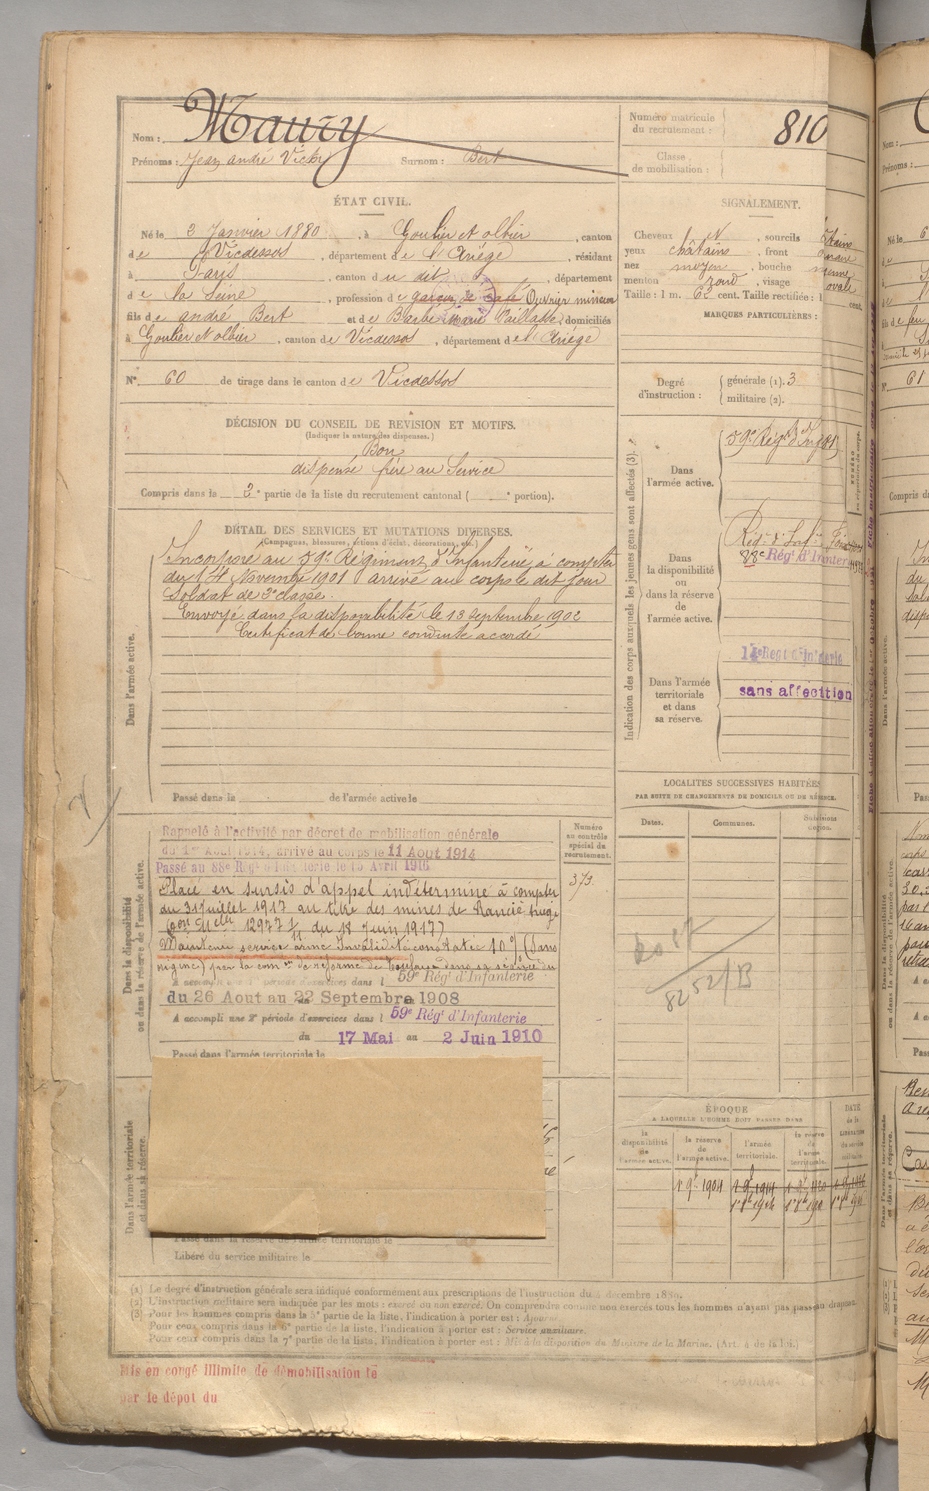 Nom : Maury
Prénoms : Jean André Vicky Surnom : Bert
Numéro matricule du recrutement : 810
Classe de mobilisation :
ÉTAT CIVIL.
Né le 3 Janvier 1880, à Goulier et Olbier, canton
de Vicdessos, département de l'Ariège, résidant
à Paris, canton du dit, département
de la Seine, profession de garçon de café Ouvrier mineur
fils de André Bert et de Barbe Marie Vaillatte, domiciliés
à Goulier et olbier, canton de Vicdessos, département de l'Ariège
N° 60 de tirage dans le canton de Vicdessos
SIGNALEMENT.
Cheveux N, sourcils
yeux châtains, front
nez moyen, bouche
menton rond, visage ovale
Taille : 1 m. 62 cent. Taille rectifiée : 1 cent.
MARQUES PARTICULIÈRES :
Degré d'instruction : générale (1). 3
militaire (2).
DÉCISION DU CONSEIL DE RÉVISION ET MOTIFS.
(Indiquer la nature des dispenses.)
Bon
dispensé frère au Service
Compris dans la 2e partie de la liste du recrutement cantonal ( e portion).
DÉTAIL DES SERVICES ET MUTATIONS DIVERSES.
(Campagnes, blessures, actions d'éclat, décorations, etc.)
Dans l'armée active.
Incorporé au 59e Régiment d'Infanterie à compter
du 14 Novembre 1901 arrivé au corps le dit jour
Soldat de 2e classe.
Envoyé dans la disponibilité le 13 Septembre 1902
Certificat de bonne conduite accordé
Passé dans la de l'armée active le
Indication des corps auxquels les jeunes gens sont affectés (3).
Dans l'armée active.
59e Régt d'Inf
Dans la disponibilité ou dans la réserve de l'armée active.
88e Régt d'Infanterie
Dans l'armée territoriale et dans sa réserve.
14e Regt d'Infanterie
sans affectition
LOCALITÉS SUCCESSIVES HABITÉES
PAR SUITE DE CHANGEMENTS DE DOMICILE OU DE RÉSIDENCE.
Dates. Communes. Subdivisions de région.
Dans la disponibilité ou dans la réserve de l'armée active.
Numéro au contrôle spécial du recrutement.
373
Rappelé à l'activité par décret de mobilisation générale
du 1er Aout 1914, arrivé au corps le 11 Aout 1914
Passé au 88e Régt d'Infanterie le 15 Avril 1916
Placé en sursis d'appel indéterminé à compter
du 31 juillet 1917 au titre des mines de Rancié
12977 du 18 Juin 1917)
Maintenu service armé Invalidité constatée 10 % (
par la com on de réforme de Toulouse dans sa séance du
A accompli une 1e période d'exercices dans l 59e Régt d'Infanterie
du 26 Aout au 22 Septembre 1908
A accompli une 2e période d'exercices dans l 59e Régt d'Infanterie
du 17 Mai au 2 Juin 1910
Passé dans l'armée territoriale le
8252/B
Dans l'armée territoriale et dans sa réserve.
ÉPOQUE
A LAQUELLE L'HOMME DOIT PASSER DANS
la disponibilité de l'armée active. la réserve de l'armée active. l'armée territoriale. la réserve de l'armée territoriale. DATE de la LIBÉRATION du service militaire.
1 9bre 1904
Passé dans la réserve de l'armée territoriale le
Libéré du service militaire le
(1) Le degré d'instruction générale sera indiqué conformément aux prescriptions de l'instruction du 4 décembre 1889.
(2) L'instruction militaire sera indiquée par les mots : exercé ou non exercé. On comprendra comme non exercés tous les hommes n'ayant pas passé au drapeau.
(3) Pour les hommes compris dans la 5e partie de la liste, l'indication à porter est : Ajourné.
Pour ceux compris dans la 6e partie de la liste, l'indication à porter est : Service auxiliaire.
Pour ceux compris dans la 7e partie de la liste, l'indication à porter est : Mis à la disposition du Ministre de la Marine. (Art. 4 de la loi.)
Mis en congé illimité de démobilisation le
par le dépôt du